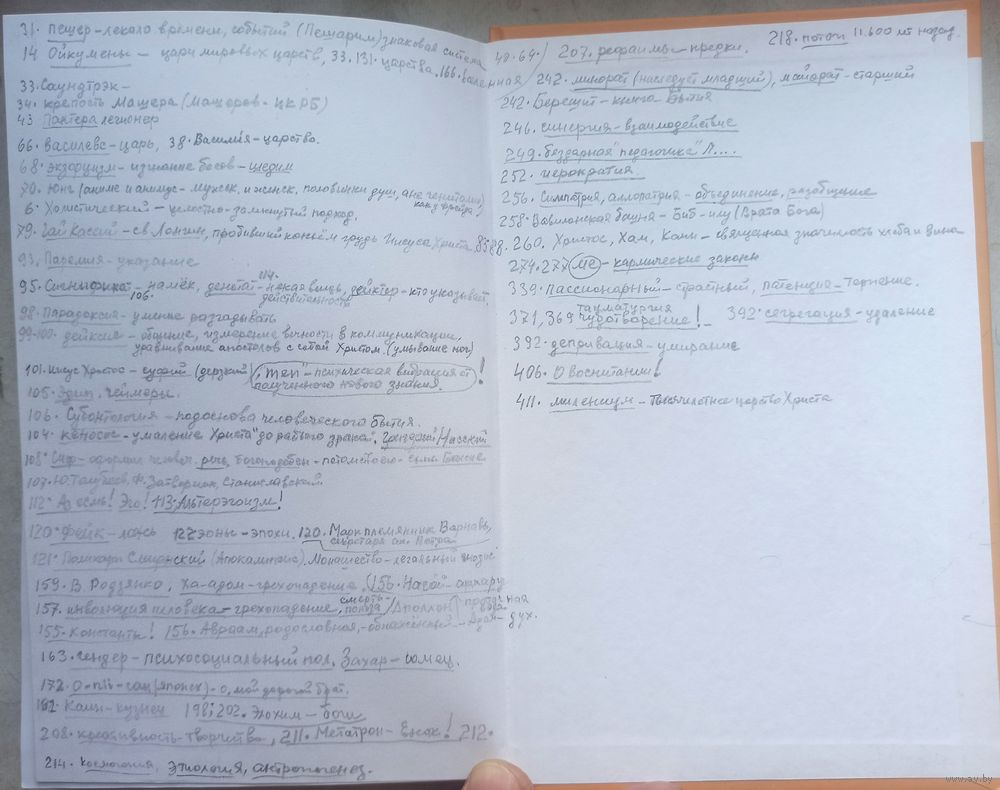 31. Пешер - лекало времени, событий (Пешарим) знаковая система
14 Ойкумены - цари мировых царств, 33. 131. царства, 166. валенная
33. Саундтрэк -
34. крепость Машера (Машеров - ЦК РБ)
43 Пантера легионер
66. Василевс - царь, 38. Василия - царство.
68. экзорцизм - изгнание бесов - шедим
70. Юнг (аниме и анимус - мужск. и женск. половинки душ, а не гениталии,
как у Фрейда)
6. Холистический - целостно-замкнутый подход.
79. Гай Кассий - св. Лонгин, пробивший копьём грудь Иисуса Христа. 85, 88.
93. Паремия - указание
95. Сигнификат - намёк, денотат - некая вещь, дейктер - кто указывает,
106. 114. действительность
98. Парадоксия - умение разгадывать
99-100. дейксис - общение, измерение вечности, в коммуникации,
уравнивание апостолов с собой Христом. (умывание ног)
101. Иисус Христос - (дерзкий) "теп" - психическая вибрация от
полученного нового знания. !
105. Эдип, чеймеры.
106. Субонтология - подоснова человеческого бытия.
104. Кеносос - умаление Христа "до рабьего зрака", Григорий Нисский
108. Сиф - речь, богоподобен - потомство его - сыны Божие
107. Ф. Затворник, Станиславский.
112. Аз есмь! Эго! 113. Альтерэгоизм!
120. Фейк - ложь 122 эоны - эпохи. 120. Марк племянник Варнавы,
ап. Петра
121. Поликарп Смирнский (Апокалипсис). Монашество - легальный гнозис
159. В. Родзянко, Ха-адом - грехопадение. (156. Нагой -
157. инволюция человека - грехопадение, смерть - польза / Аполлон
155. константы! 156. Авраам, родословная, - обнажённый - Адам - дух.
163. Гендер - психосоциальный пол. Захар - самец.
172. О-nii-сан (японск.) - о, мой дорогой брат.
182. Каин - кузнец 198, 202. Элохим - боги
208. креативность - творчество, 211. Метатрон - Енох! 212.
214. Космогония, этиология, антропогенез.
40-64) 207. рефаимы - предки. 218. потоп 11.600 лет назад.
242. минорат (наследует младший), майорат - старший
242. Берешит - книга Бытия
246. синергия - взаимодействие
249. бездарная "педагогика" Л....
252. иерократия.
256. Симпатрия, аллопатрия - объединение, разобщение
258. Вавилонская башня - Баб-илу (Врата Бога)
260. Христос, Хам, Каин - священная значимость хлеба и вина
274. 277 (МЕ) - кармические законы
339. пассионарный - страстный, патенция - терпение.
тауматургия
371, 369 чудотворение! - 392. сегрегация - удаление
392. депривация - умирание
406. О воспитании
411. милениум - тысячелетнее царство Христа
www.ay.by